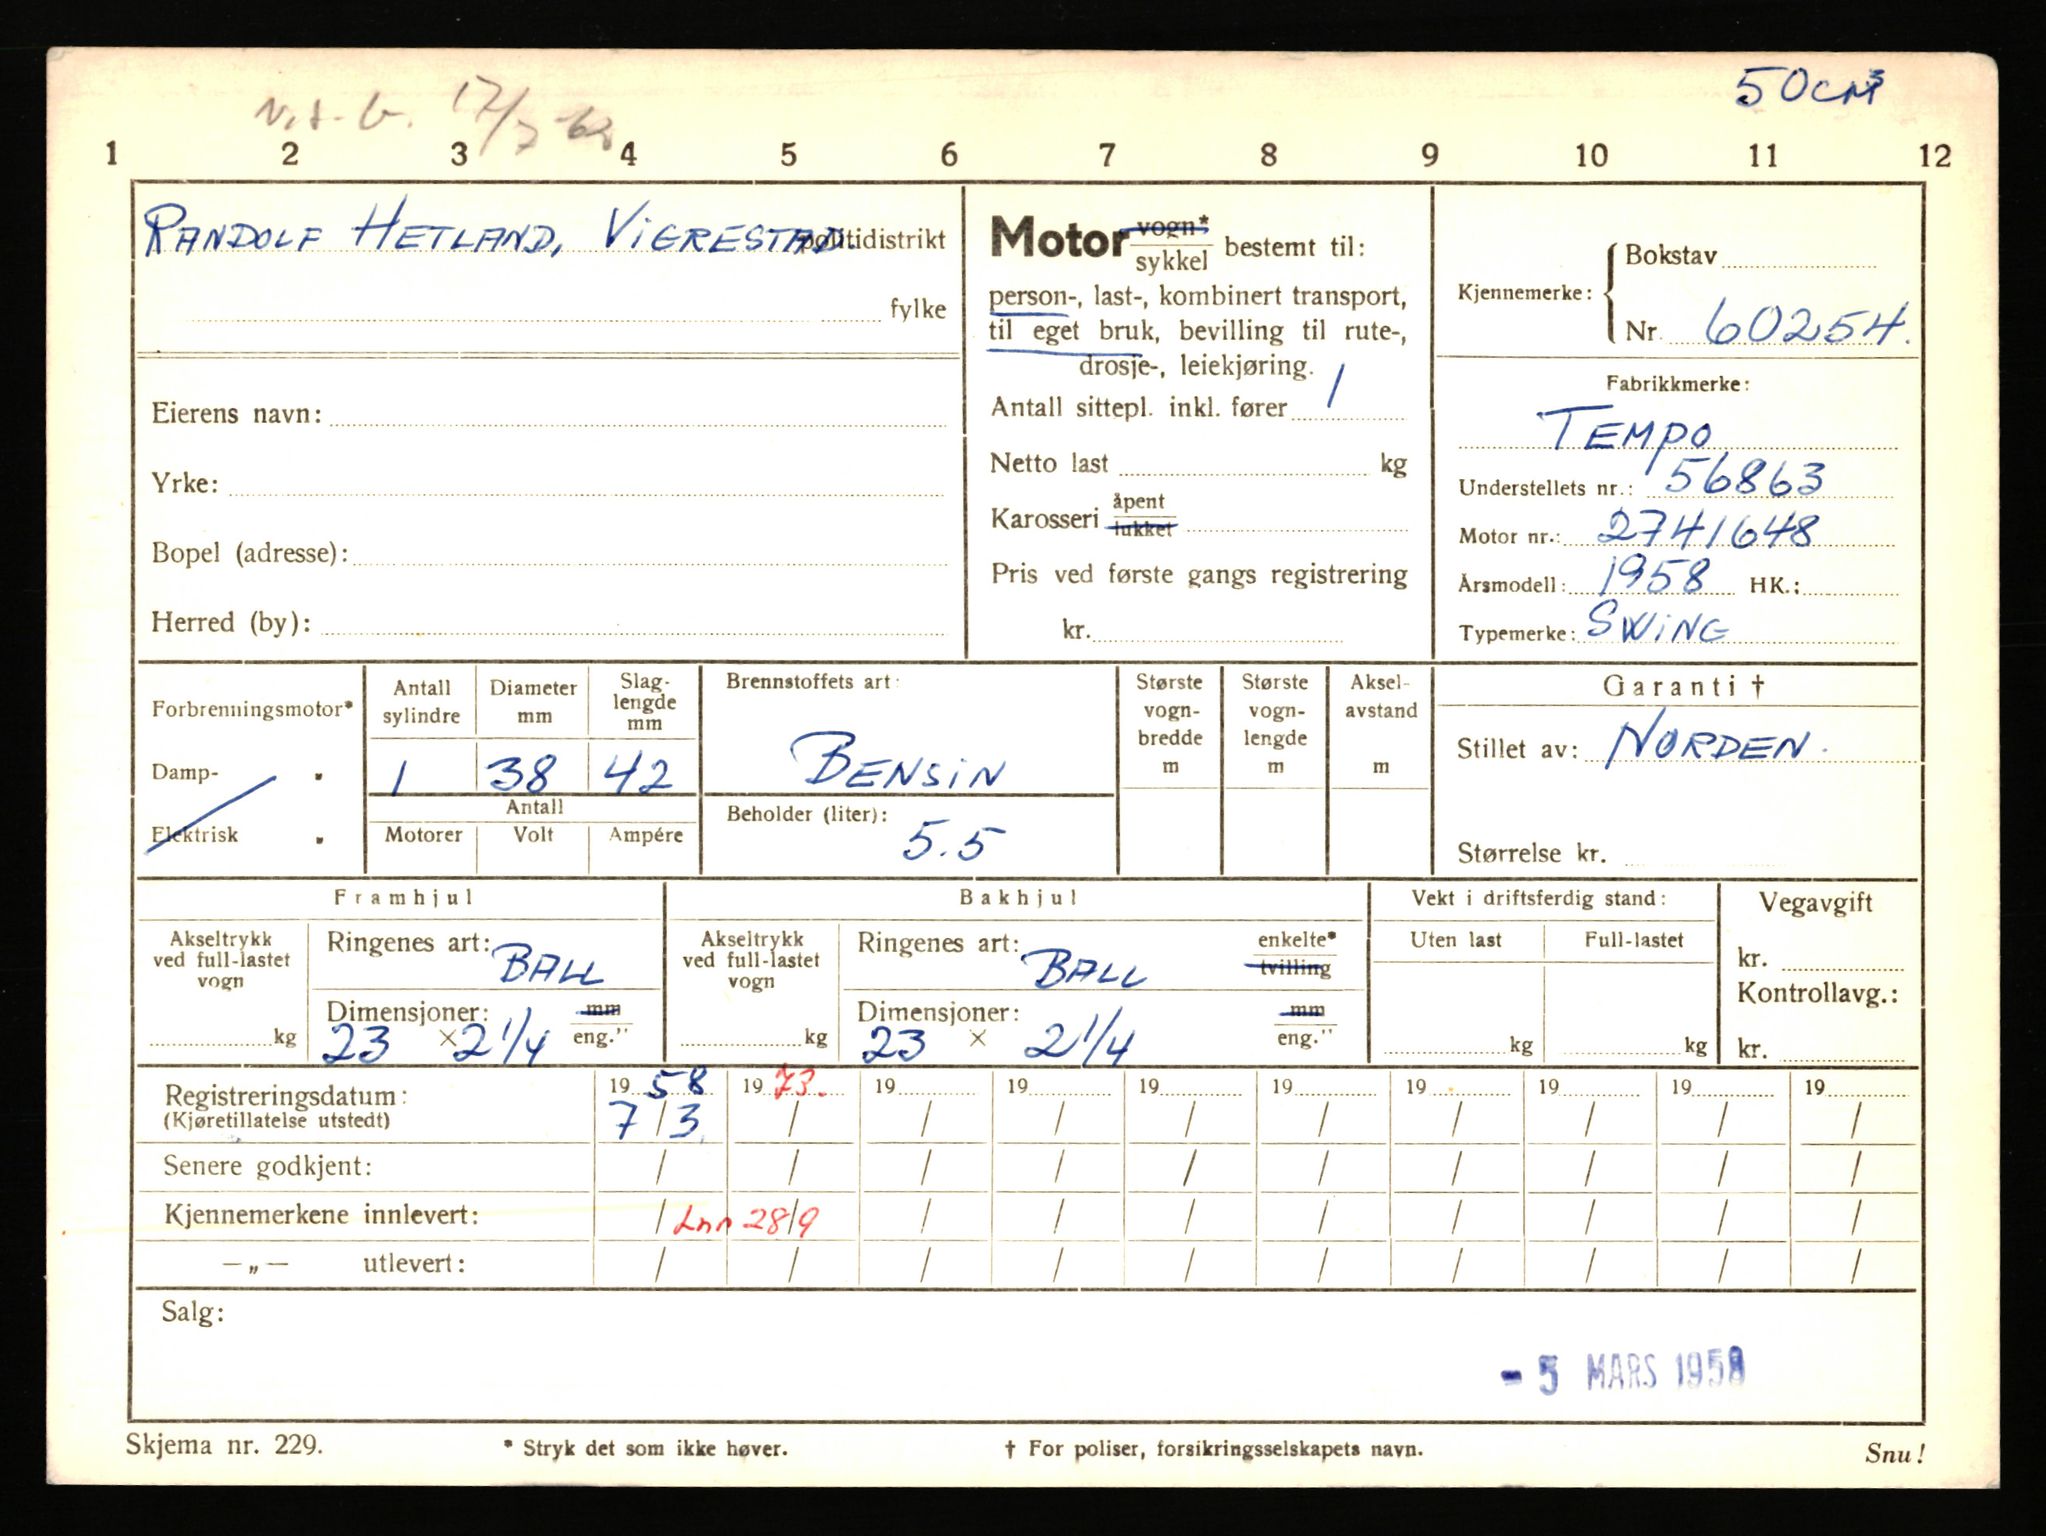 50 CM3
1 2 3 4 5 6 7 8 9 10 11 12
RANDOLF HETLAND, VIGRESTAD. politidistrikt
fylke
Eierens navn:
Yrke:
Bopel (adresse):
Herred (by):
Motor vogn* sykkel bestemt til:
person-, last-, kombinert transport,
til eget bruk, bevilling til rute-,
drosje-, leiekjøring.
Antall sittepl. inkl. fører 1
Netto last kg
Karosseri åpent lukket
Pris ved første gangs registrering
kr.
Kjennemerke: Bokstav
Nr. 60254.
Fabrikkmerke:
TEMPO
Understellets nr.: 56863
Motor nr.: 2741648
Årsmodell: 1958 HK.:
Typemerke: SWING
Forbrenningsmotor*
Damp- "
Elektrisk "
Antall sylindre Diameter mm Slaglengde mm
1 38 42
Antall
Motorer Volt Ampére
Brennstoffets art:
BENSIN
Beholder (liter):
5.5
Største vogn-bredde m
Største vogn-lengde m
Aksel-avstand m
Garanti †
Stillet av: NORDEN.
Størrelse kr.
Framhjul
Akseltrykk ved full-lastet vogn
kg
Ringenes art: BALL
Dimensjoner: mm
23 × 2 1/4 eng."
Bakhjul
Akseltrykk ved full-lastet vogn
kg
Ringenes art: BALL enkelte* tvilling
Dimensjoner: mm
23 × 2 1/4 eng."
Vekt i driftsferdig stand:
Uten last Full-lastet
kg kg
Vegavgift
kr.
Kontrollavg.:
kr.
Registreringsdatum: 19 58 19 73. 19 19 19 19 19 19 19 19
(Kjøretillatelse utstedt) 7/3 / / / / / / / / /
Senere godkjent: / / / / / / / / / /
Kjennemerkene innlevert: / Inn 28/9 / / / / / / / /
—„— utlevert: / / / / / / / / / /
Salg:
- 5 MARS 1958
Skjema nr. 229. * Stryk det som ikke høver. † For poliser, forsikringsselskapets navn. Snu!